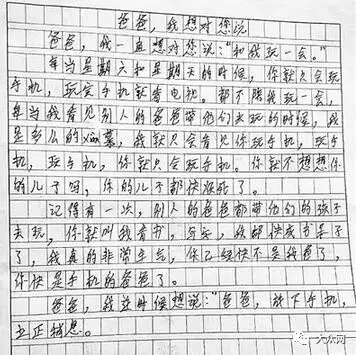 爸爸，我想对您说
爸爸，我一直想对您说：“和我玩一会。”
每当星期六和星期天的时候，你就只会玩
手机，玩完手机就看电视。都不陪我玩一会，
每当我看见别人的爸爸带他们去玩的时候，我
是多么的xian慕，我就只会看见你玩手机，玩手
机，玩手机，你就只会玩手机。你就不想想你
的儿子吗，你的儿子都快疯死了。
记得有一次，别人的爸爸都带他们的孩子
去玩，你就叫我看书，写字，我都快成书呆子
了，我真的非常生气，你已经快不是我爸了，
你快是手机的爸爸了。
爸爸，我这时候想说：“爸爸，放下手机，
立正稍息。
大众网